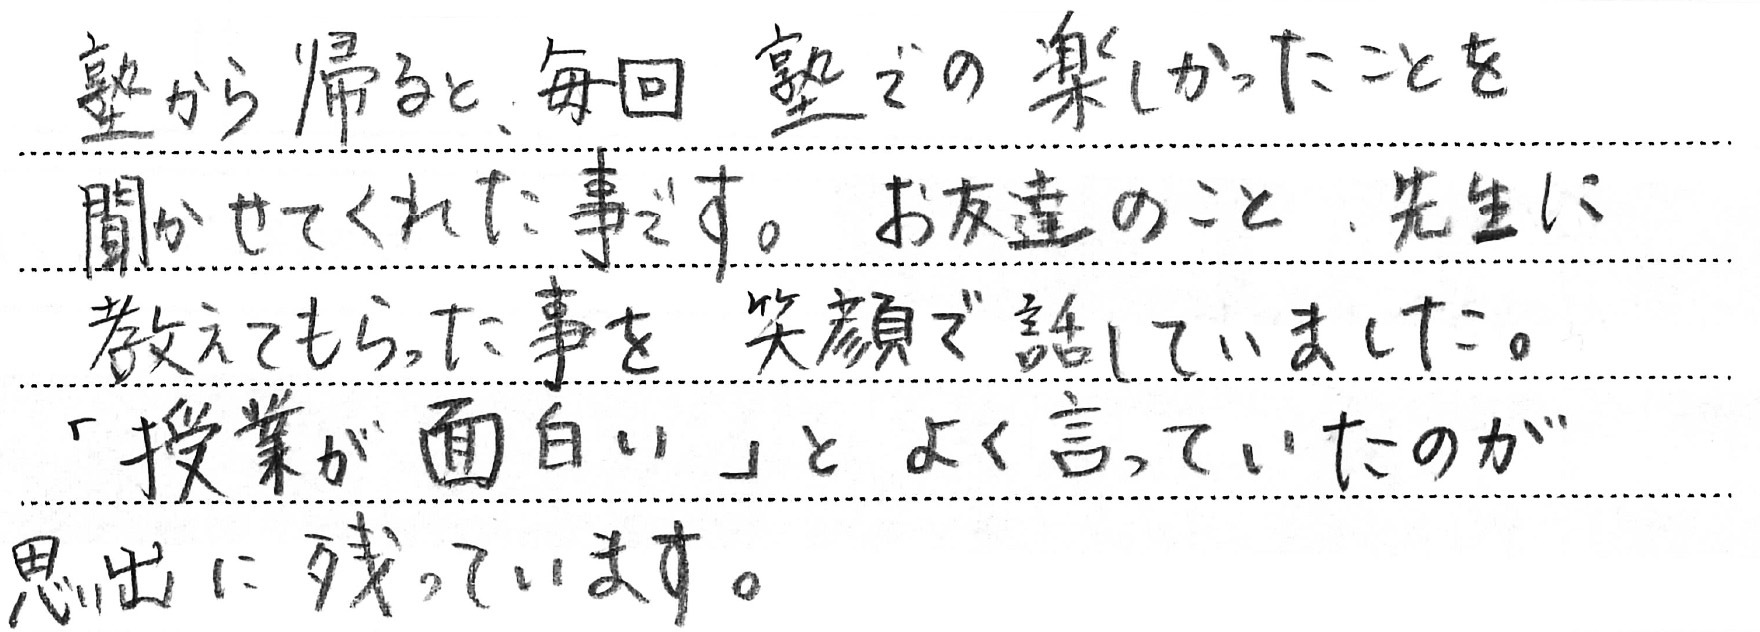 塾から帰ると、毎回 塾での楽しかったことを
聞かせてくれた事です。 お友達のこと、先生に
教えてもらった事を 笑顔で話していました。
「授業が面白い」と よく言っていたのが
思い出に残っています。